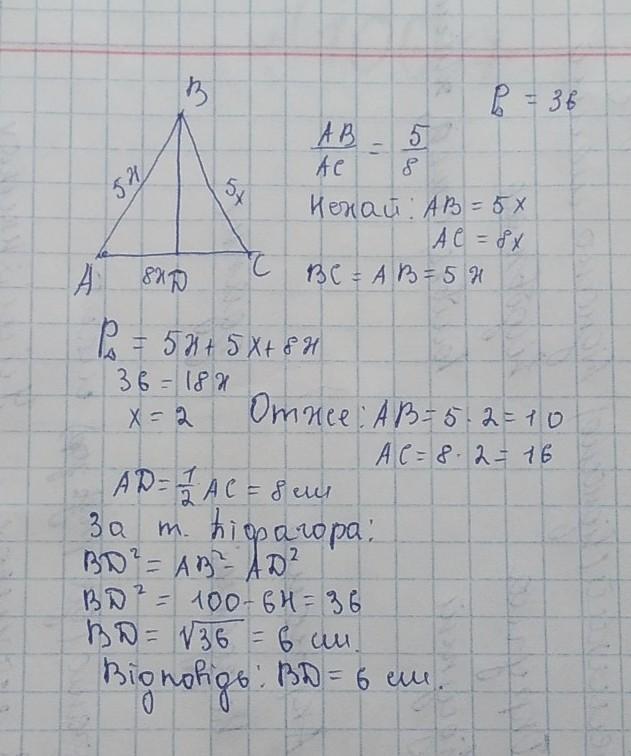 B
P△ = 36
AB/AC = 5/8
5x
5x
Нехай: AB = 5x
AC = 8x
A
8x
D
C
BC = AB = 5x
P△ = 5x + 5x + 8x
36 = 18x
x = 2
Отже: AB = 5 · 2 = 10
AC = 8 · 2 = 16
AD = 1/2 AC = 8 см
За т. Піфагора:
BD² = AB² - AD²
BD² = 100 - 64 = 36
BD = √36 = 6 см.
Відповідь: BD = 6 см.